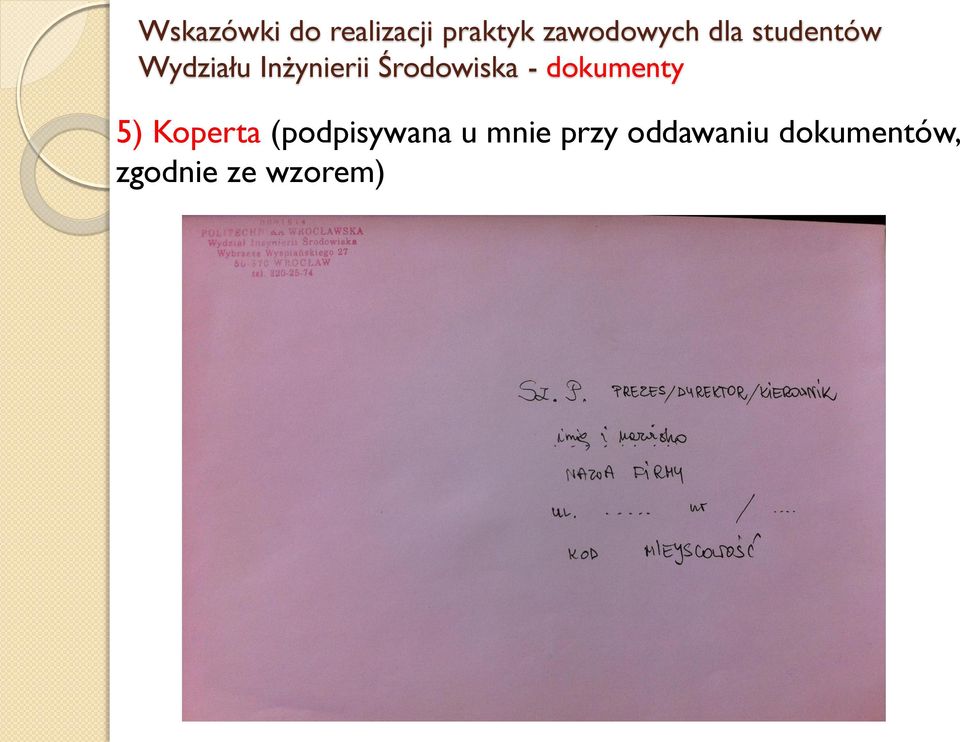 Wskazówki do realizacji praktyk zawodowych dla studentów
Wydziału Inżynierii Środowiska - dokumenty
5) Koperta (podpisywana u mnie przy oddawaniu dokumentów,
zgodnie ze wzorem)
POLITECHNIKA WROCŁAWSKA
Wydział Inżynierii Środowiska
Wybrzeże Wyspiańskiego 27
50-370 WROCŁAW
tel. 320-25-74
Sz. P. PREZES/DYREKTOR/KIEROWNIK
imię i nazwisko
NAZWA FIRMY
UL. ..... nr / ....
KOD MIEJSCOWOŚĆ